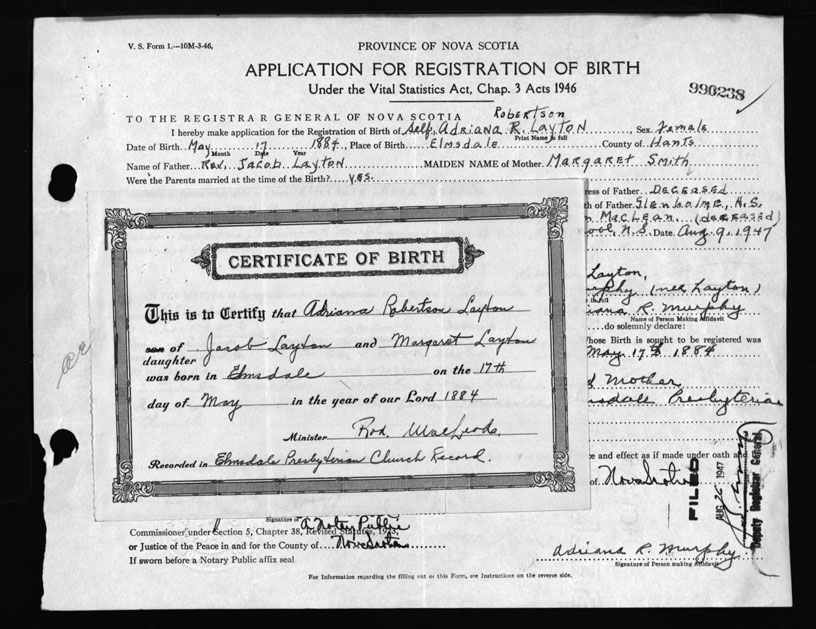 V. S. Form 1.—10M-3-46,
PROVINCE OF NOVA SCOTIA
APPLICATION FOR REGISTRATION OF BIRTH
Under the Vital Statistics Act, Chap. 3 Acts 1946
990238
TO THE REGISTRAR GENERAL OF NOVA SCOTIA
Robertson
I hereby make application for the Registration of Birth of Self, Adriana R. Layton, Sex Female
Print Name in full
Date of Birth May 17 1884, Place of Birth Elmsdale County of Hants
Month Date Year
Name of Father Rev. Jacob Layton MAIDEN NAME of Mother Margaret Smith
Were the Parents married at the time of the Birth? Yes.
ress of Father Deceased
th of Father Glenholme, N.S.
n MacLean (deceased)
ool, N.S. Date Aug. 9, 1947
CERTIFICATE OF BIRTH
This is to Certify that Adriana Robertson Layton
son of Jacob Layton and Margaret Layton
daughter
was born in Elmsdale on the 17th
day of May in the year of our Lord 1884
Minister Rod. MacLeod
Recorded in Elmsdale Presbyterian Church Record.
Layton,
urphy (nee Layton)
in full
iana R. Murphy
Name of Person Making Affidavit
do solemnly declare:
hose Birth is sought to be registered was
May 17th 1884
d Mother
msdale Presbyterian
ce and effect as if made under oath and
of Nova Scotia
FILED
AUG 26 1947
Deputy Registrar General
Signature of A Notary Public
Commissioner under Section 5, Chapter 38, Revised Statutes, 1923,
or Justice of the Peace in and for the County of Nova Scotia
If sworn before a Notary Public affix seal.
Adriana R. Murphy
Signature of Person making Affidavit
For Information regarding the filling out of this Form, see Instructions on the reverse side.